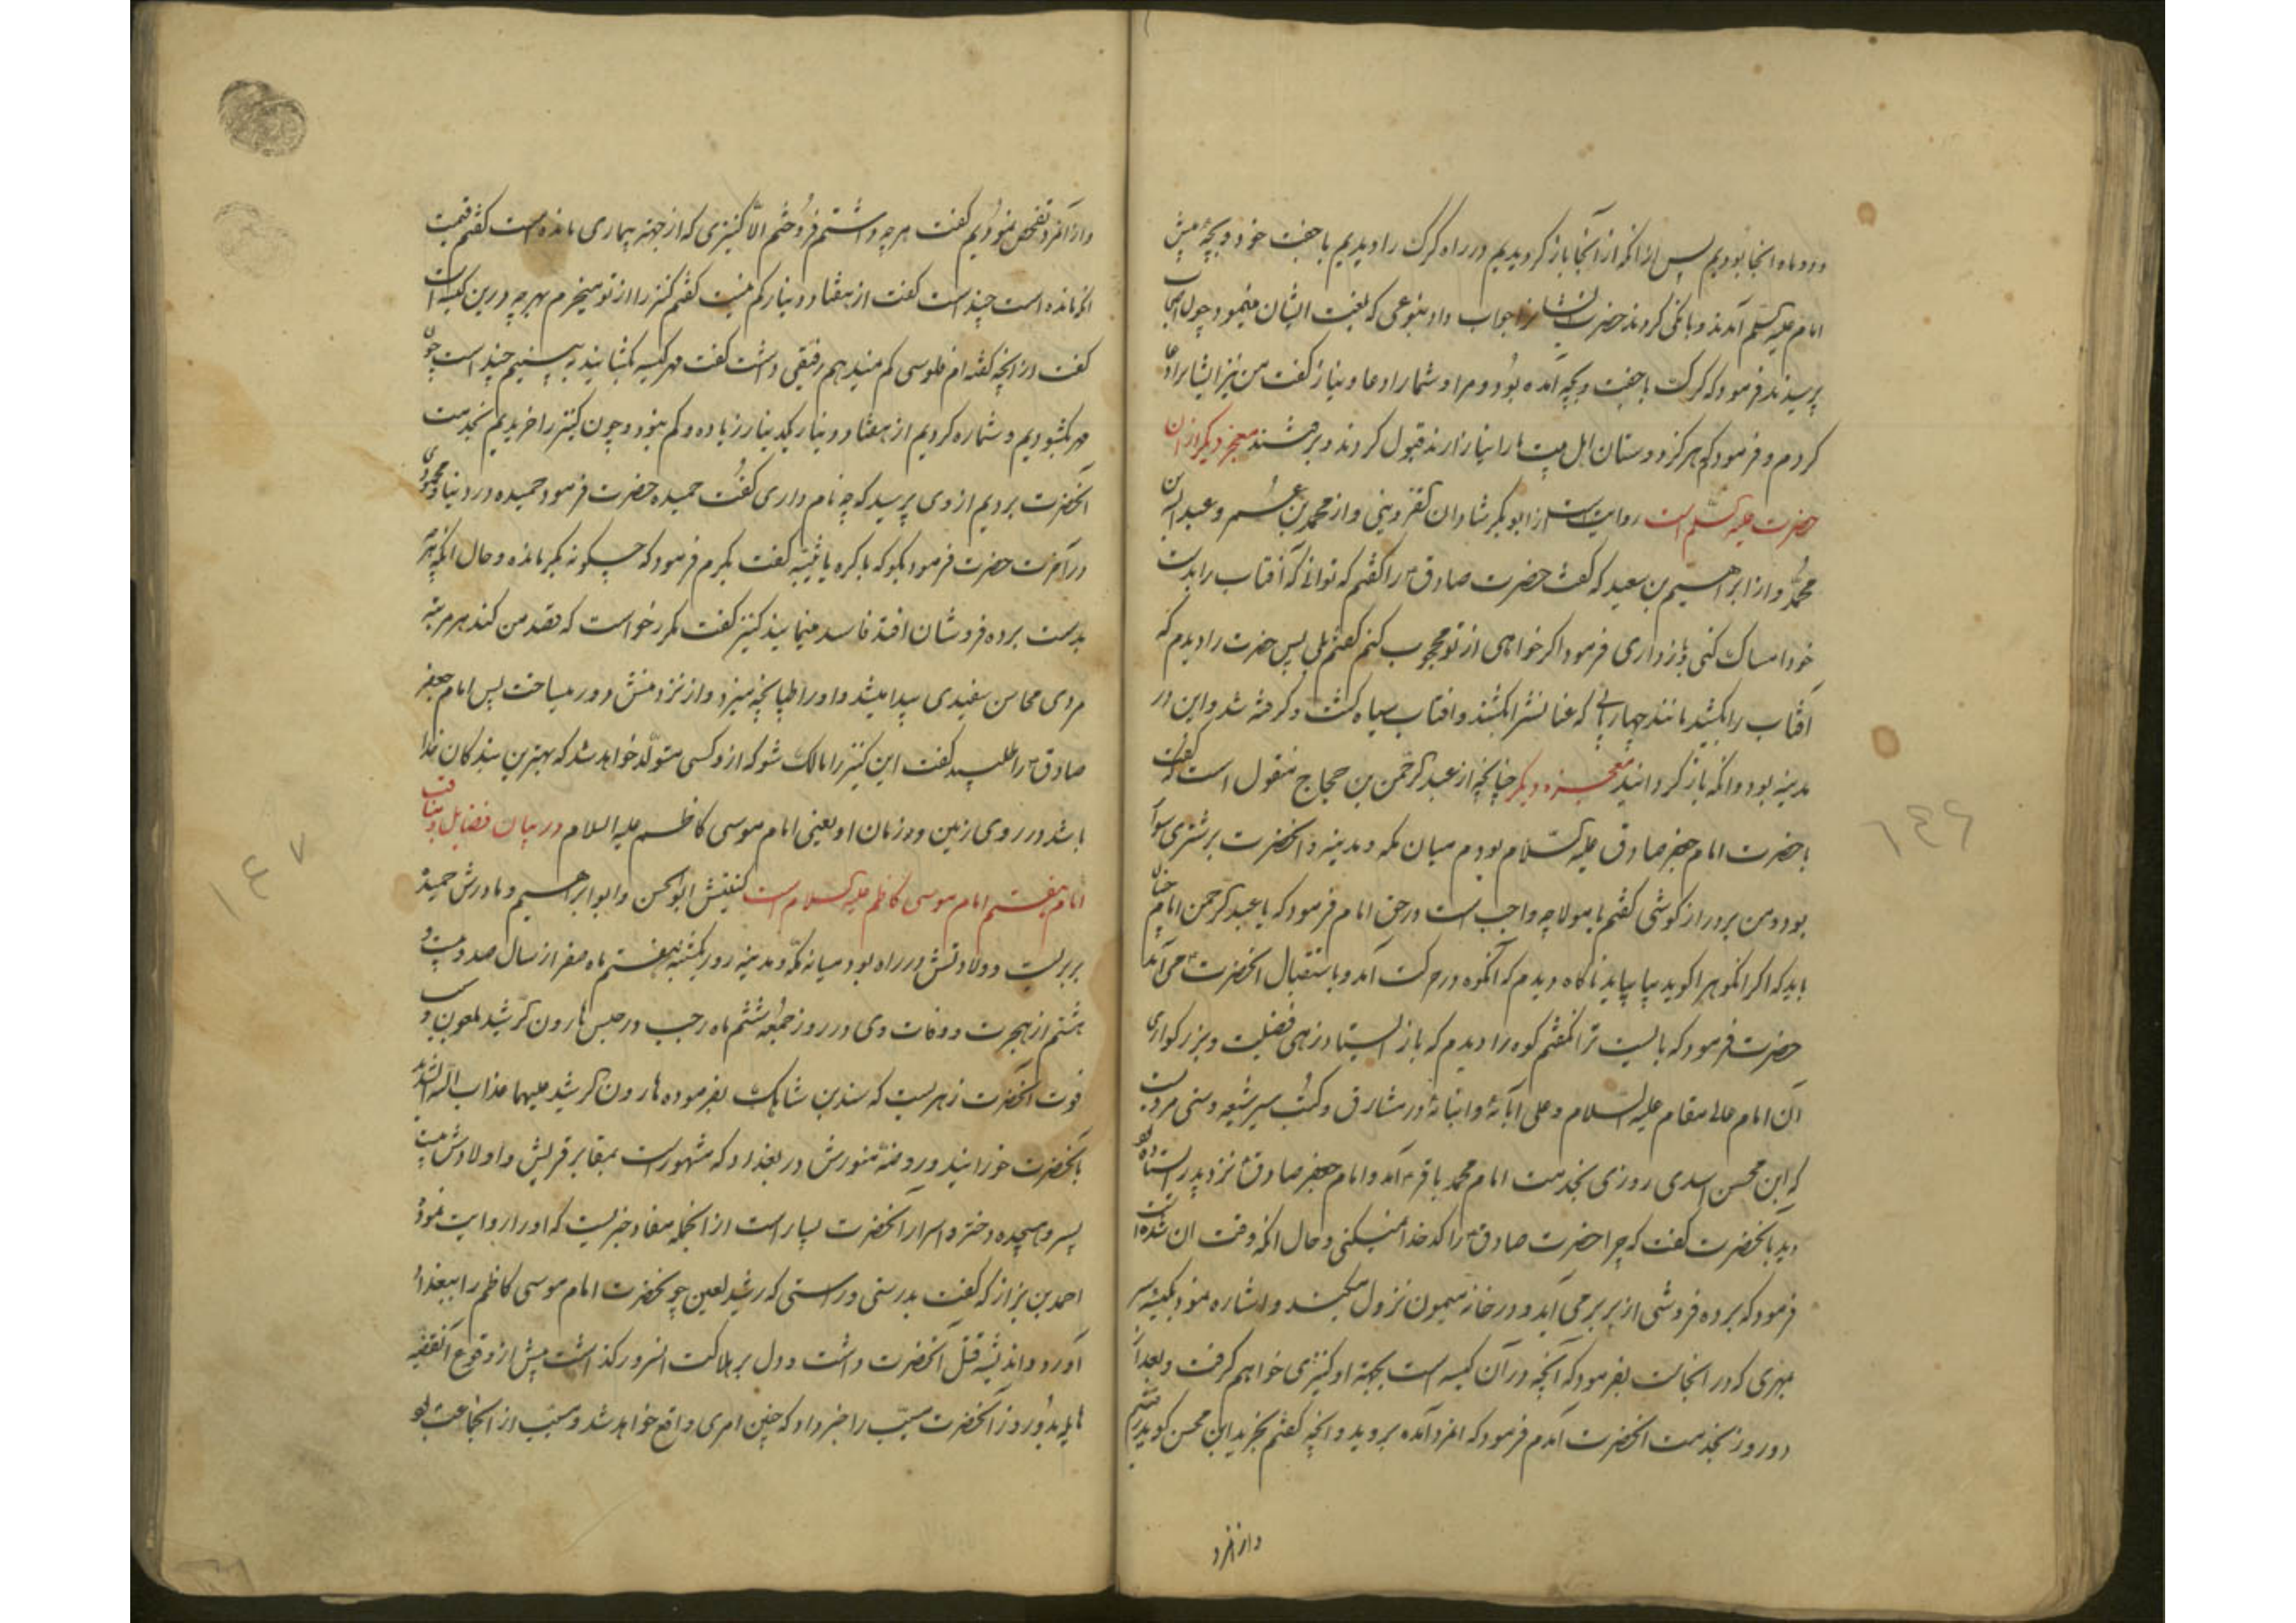 و دو ماه انجا بودیم پس از انکه از آنجا باز کردیدیم در راه کرک را دیدیم با جفت خود و بچهٔ پیش
امام علیه السلم آمدند و بانکی کردند حضرت ایشانرا جواب داد بنوعی که بلغت ایشان مینمود چون اصحاب
پرسیدند فرمود که کرک با جفت و بچه آمده بود و مرا و شما را دعا و نیاز کفت من نیز ایشانرا دعا
کردم و فرمودم که هرکز دوستان اهل بیت ما را نیازارند قبول کردند و برفتند معجز دیکر از ان
حضرت علیه السلم است روایتست از ابوبکر شادان قزوینی و از محمد بن عمر و عبد الله بن
محمد و از ابراهیم بن سعید که کفت حضرت صادق را کفتم که توانی که آفتاب را بدست
خود امساک کنی و باز داری فرمود اکر خواهی از تو محجوب کنم کفتم بلی پس حضرت را دیدم که
آفتاب را بکشید مانند چهارپایی که عنانشرا بکشند و افتاب سیاه کشت و کرفته شد و این در
مدینه بود و انکه باز کردانید معجزه دیکر چنانچه از عبد الرحمن بن حجاج منقول است که کفت
با حضرت امام جعفر صادق علیه السلام بودم میان مکه و مدینه و انحضرت بر شتری سوار
بود و من بر درازکوشی کفتم یا مولا چه واجب است در حق امام فرمود که یا عبد الرحمن امام چنان
باید که اکر انکوه را کوید بیا بیاید ناکاه دیدم که آنکوه در حرکت آمد و باستقبال انحضرت می آمد
حضرت فرمود که بایست ترا نکفتم کوه را دیدم که باز ایستاد زهی فضیلت و بزرکواری
آن امام عالی مقام علیه السلام و علی آبائه و ابنائه و در مشارق و کتب سیر شیعه و سنی مرویست
که ابن محسن اسدی روزی بخدمت امام محمد باقر آمد و امام جعفر صادق نزد پدر ایستاده بود
دید بانحضرت کفت که چرا حضرت صادق را کدخدا نمیکنی و حال انکه وقت ان شده است
فرمود که برده فروشی از بربر می آید و در خانه میمون نزول میکند و اشاره نمود بکیسه سر
بمهری که در انجاست بفرمود که آنچه در آن کیسه است بجهة او کنیزی خواهم کرفت و بعد از
دو روز بخدمت انحضرت آمدم فرمود که انمرد آمده بروید و انچه کفتم بخرید ابن محسن کوید رفتیم
و از انمرد
۱۴۶
و از آنمرد تفحص نمودیم کفت هرچه داشتم فروختم الا کنیزی که از جهة بیماری مانده است کفتم قیمت
انکه مانده است چند است کفت از هفتاد دینار کم نیست کفتم کنیز را از تو میخرم بهرچه درین کیسه است
کفت از انچه کفته ام فلوسی کم نمیدهم رفیقی داشت کفت مهر کیسه بکشایید ببینیم چند است چون
مهر بکشودیم و شماره کردیم از هفتاد دینار یکدینار زیاده و کم نبود و چون کنیز را خریدیم بخدمت
آنحضرت بردیم از وی پرسید که چه نام داری کفت حمیده حضرت فرمود حمیده در دنیا و محمودی
در آخرت حضرت فرمود بکو که باکره یا ثیبه کفت بکرم فرمود که چکونه بکر مانده و حال انکه هرچه
بدست برده فروشان افتد فاسد مینمایند کنیز کفت مکرر خواست که قصد من کند هر مرتبه
مردی محاسن سفیدی پیدا میشد و او را طپانچه میزد و از نزد منش دور میساخت پس امام جعفر
صادق را طلبید کفت این کنیز را مالک شو که ازو کسی متولد خواهد شد که بهترین بندکان خدا
باشد در روی زمین و در زمان او یعنی امام موسی کاظم علیه السلام در بیان فضایل و مناقب
امام هفتم امام موسی کاظم علیه السلام است کنیتش ابو الحسن و ابو ابراهیم و مادرش حمیده
بربریست و ولادتش در راه بود میانه مکه و مدینه روز یکشنبه هفتم ماه صفر از سال صد و بیست و
هشتم از هجرت و وفات وی در روز جمعه ششم ماه رجب در حبس هارون الرشید ملعون و سبب
فوت آنحضرت زهریست که سندی بن شاهک بفرموده هارون الرشید علیهما عذاب الله الشدید
بآنحضرت خورانید و روضه منورش در بغداد که مشهورست بمقابر قریش و اولادش بیست
پسر و هیجده دختر و اسرار آنحضرت بسیار است از انجمله مفاد خبریست که او را روایت نموده
احمد بن بزاز که کفت بدرستی و راستی که رشید لعین چو حضرت امام موسی کاظم را ببغداد
آورد و اندیشه قتل آنحضرت داشت و دل بر هلاکت انسرور کذاشت پیش از وقوع آنقضیه
هایله بدو روز آنحضرت مسیب را خبر داد که چنین امری واقع خواهد شد و مسیب از انجماعت بود
۱۴۷